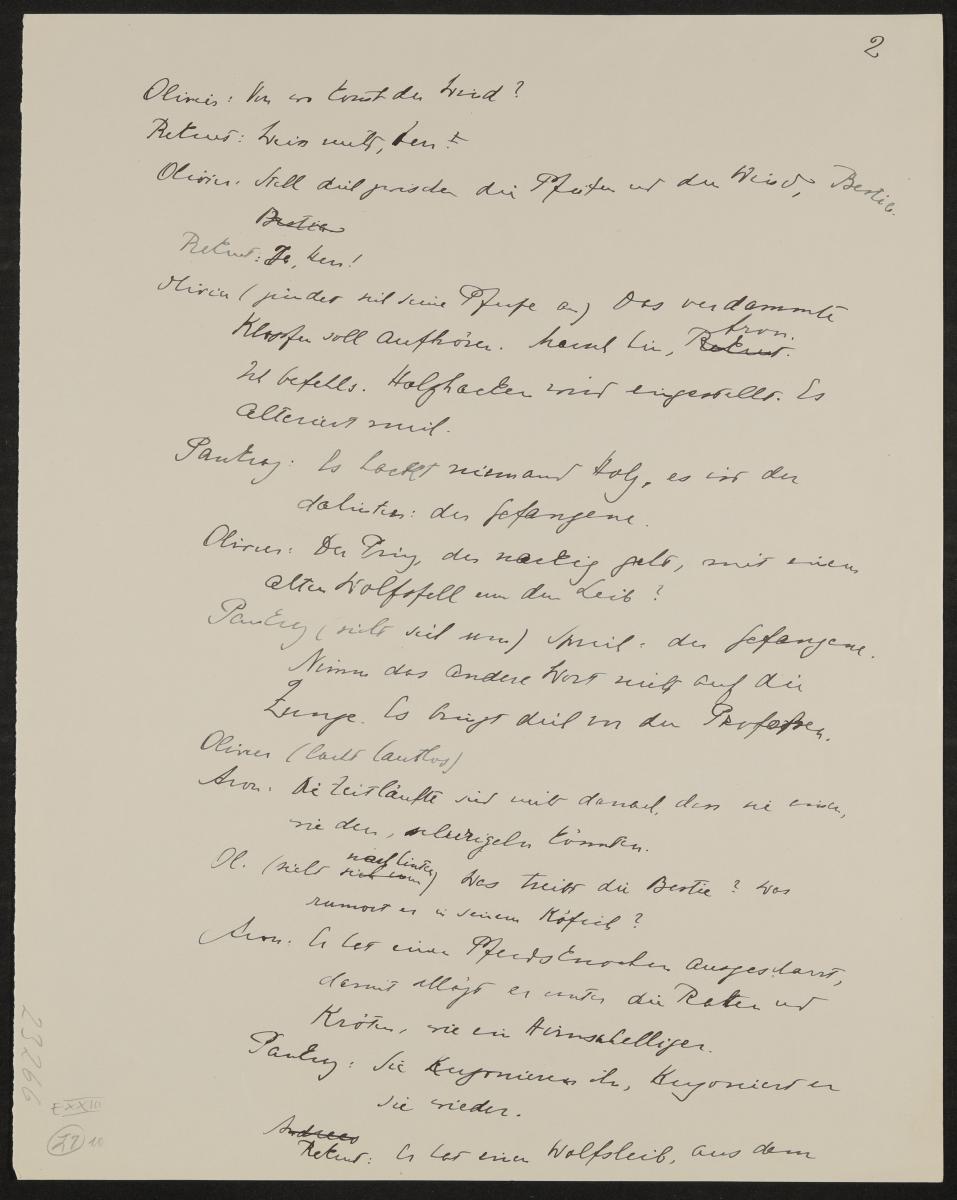 2
Olivier: Von wo kommt der Wind?
Rekrut: Weiss nicht, Herr!
Olivier: Stell dich zwischen die Pfeifen und den Wind, Bestie.
Bestie
Rekrut: Ja, Herr!
Olivier (zündet sich seine Pfeife an) Das verdammte
Klopfen soll aufhören. Marsch hin, Rekrut. Aron.
Ich befehls. Holzhacken wird eingestellt. Es
alteriert mich.
Pankraz: Es hackt niemand Holz, es ist der
dahinten: der Gefangene.
Olivier: Der Prinz, der nackig geht, mit einem
alten Wolfsfell um den Leib?
Pankraz (sieht sich um) Sprich: der Gefangene.
Nimm das andere Wort nicht auf die
Zunge. Es bringt dich vor den Profossen.
Olivier (lacht lautlos)
Aron: Die Zeitläufte sind nicht danach, dass sie einen,
wie den, schurigeln könnten.
Ol. (sieht sich um nach hinten) Was treibt die Bestie? Was
rumort er in seinem Käfich?
Aron: Er hat einen Pferdsknochen ausgescharrt,
damit schlägt er unter die Ratten und
Kröten, wie ein Hirnschelliger.
Pankraz: Sie kujonieren ihn, kujoniert er
sie wieder.
Andreas
Rekrut: Er hat einen Wolfsleib, aus dem
23266
EXXIII
27 10